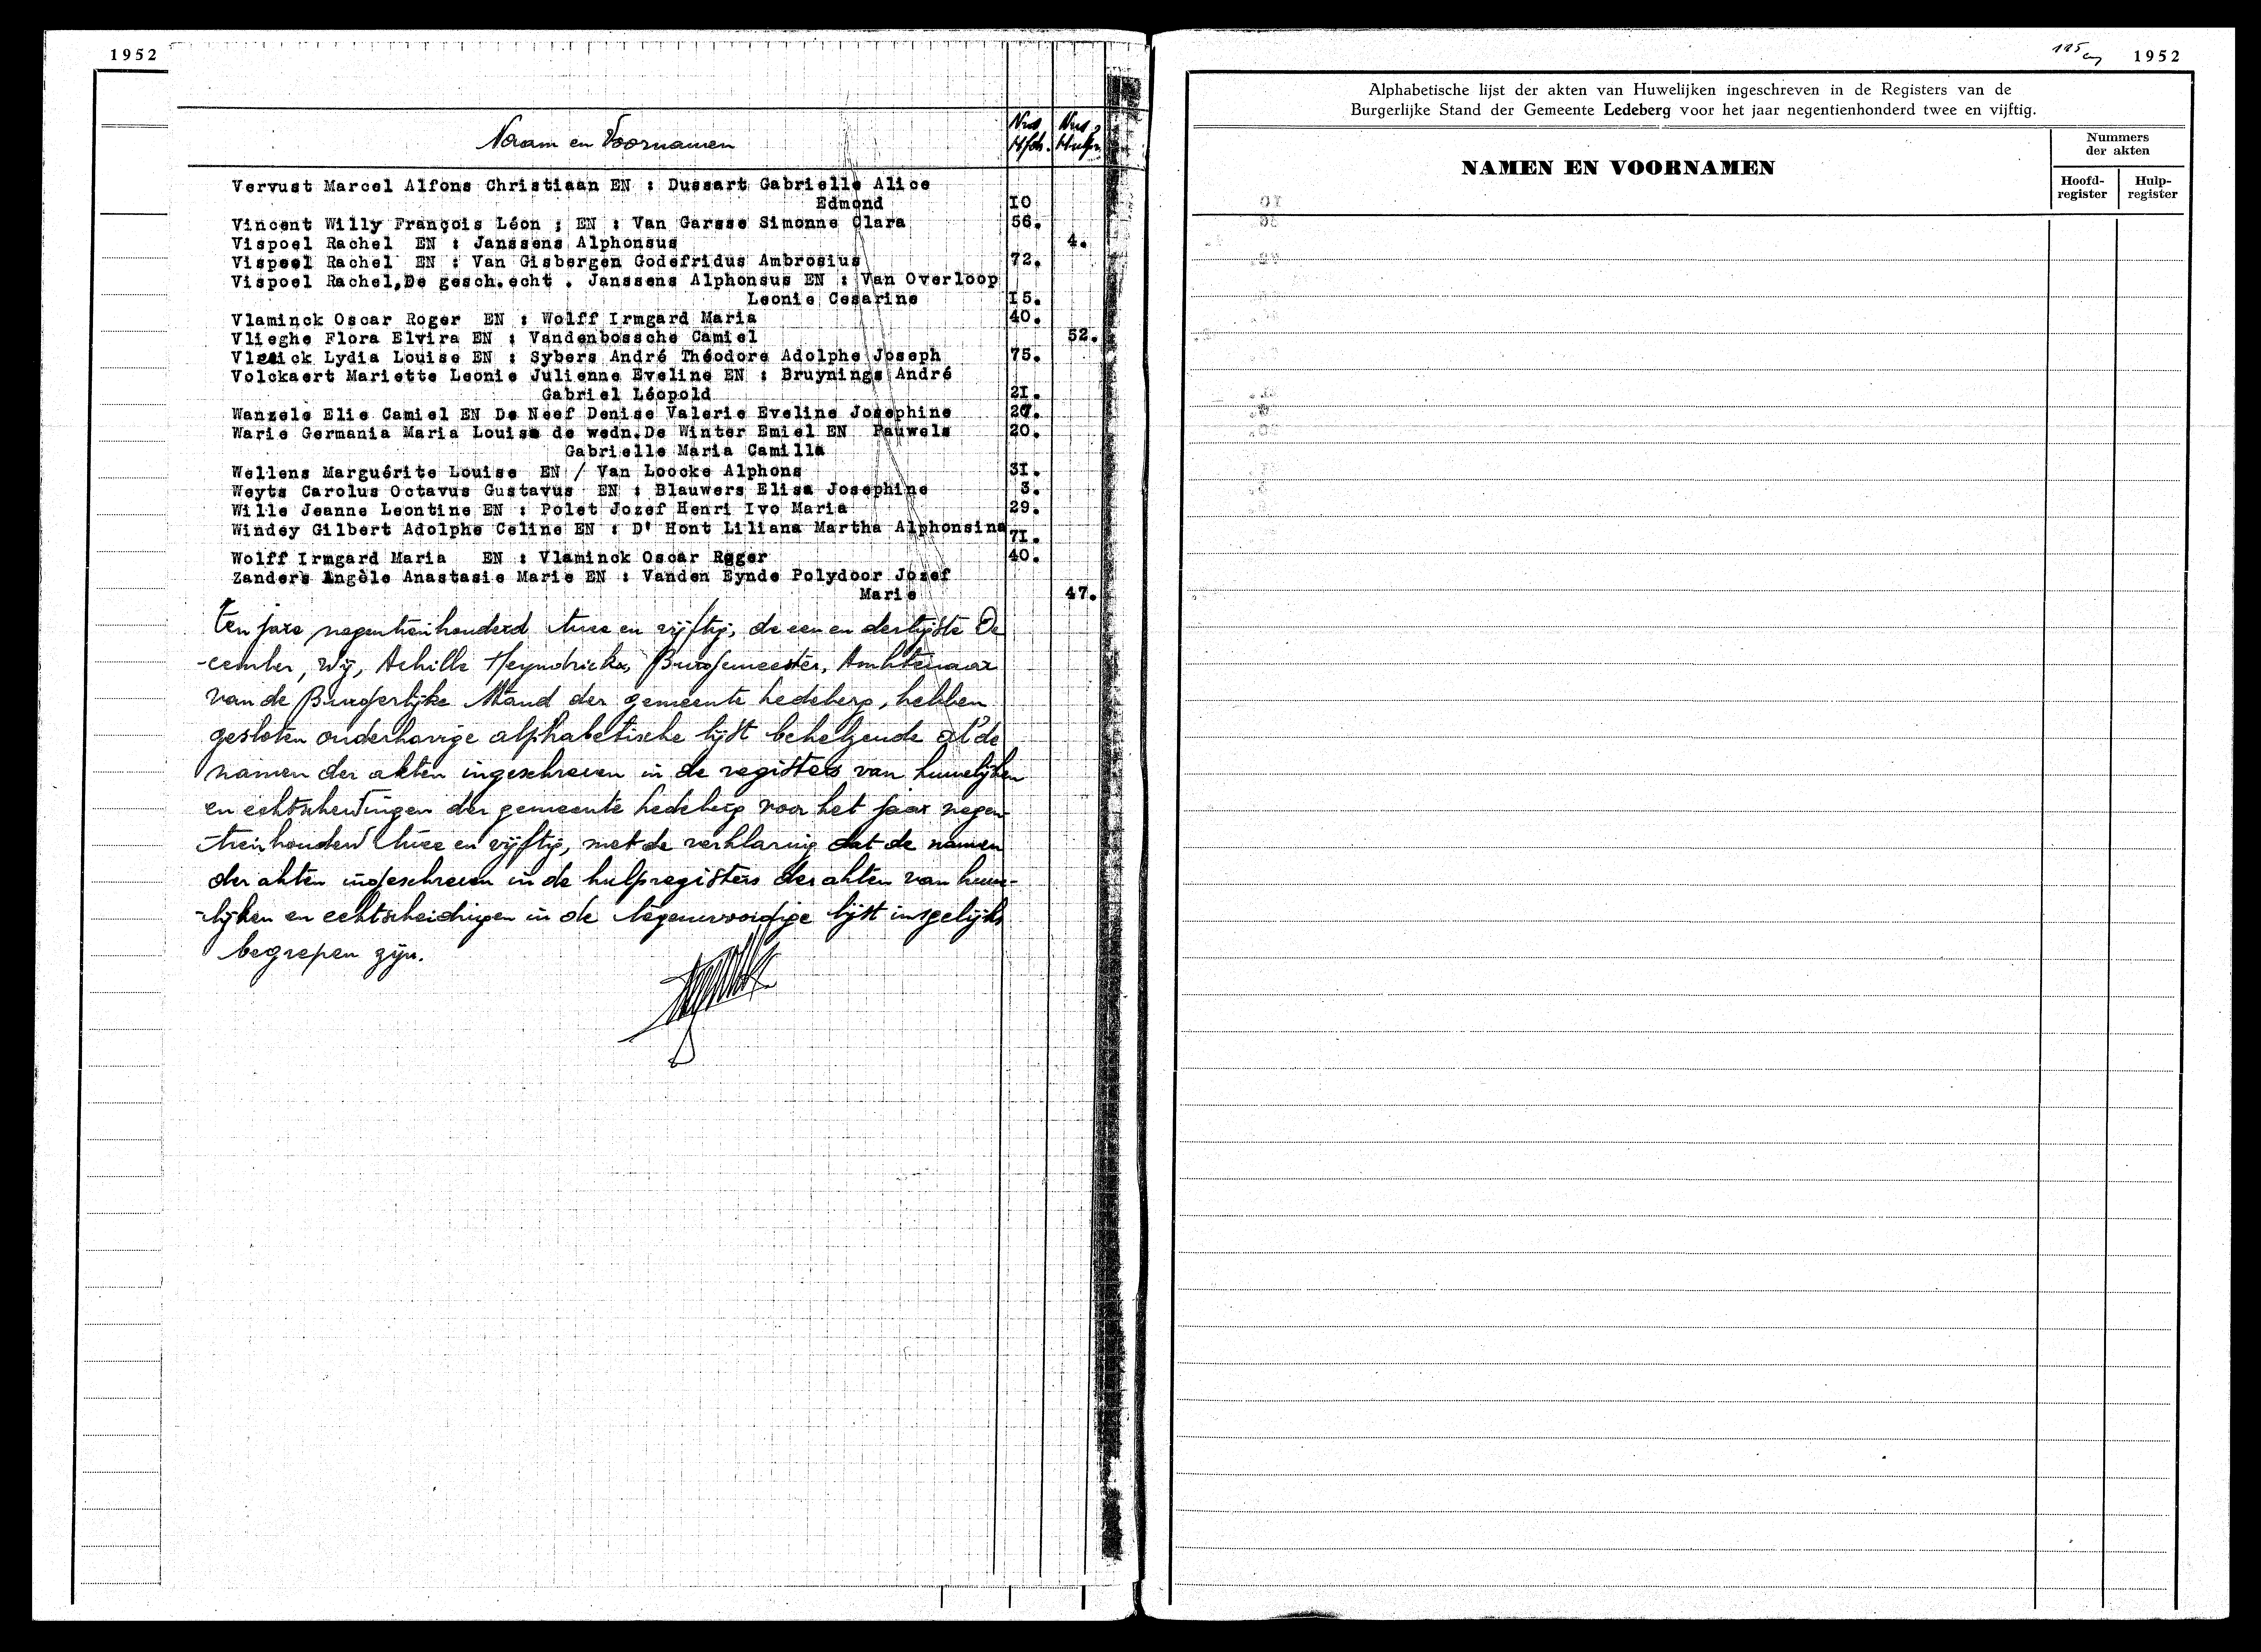 1952
Naam en Voornamen
Nrs Nrs
Vervust Marcel Alfons Christiaan EN : Dussart Gabrielle Alice
Edmond 10
Vincent Willy François Léon ; EN : Van Garsse Simonne Clara 56.
Vispoel Rachel EN : Janssens Alphonsus 4.
Vispoel Rachel EN : Van Gisbergen Godefridus Ambrosius 72.
Vispoel Rachel,De gesch.echt . Janssens Alphonsus EN : Van Overloop
Leonie Cesarine 15.
Vlaminck Oscar Roger EN : Wolff Irmgard Maria 40.
Vlieghe Flora Elvira EN : Vandenbossche Camiel 52.
Lydia Louise EN : Sybers André Théodore Adolphe Joseph 75.
Volckaert Mariette Leonie Julienne Eveline EN : Bruynings André
Gabriel Léopold 21.
Wanzele Elie Camiel EN De Neef Denise Valerie Eveline Josephine
Warie Germania Maria Louise de wedn.De Winter Emiel EN Pauwels 20.
Gabrielle Maria Camilla
Wellens Marguérite Louise EN / Van Loocke Alphons 31.
Weyts Carolus Octavus Gustavus EN : Blauwers Elisa Josephine 3.
Wille Jeanne Leontine EN : Polet Jozef Henri Ivo Maria 29.
Windey Gilbert Adolphe Celine EN : D' Hont Liliana Martha Alphonsina 71.
Wolff Irmgard Maria EN : Vlaminck Oscar Roger 40.
Zanders Angèle Anastasie Marie EN : Vanden Eynde Polydoor Jozef
Marie 47.
Ten jare negentienhonderd twee en vijftig, de een en dertigste De
-cember, Wij, Achille Heyndrickx, Burgemeester, Ambtenaar
van de Burgerlijke Stand der gemeente Ledeberg, hebben
gesloten onderhavige alphabetische lijst behelzende al de
namen der akten ingeschreven in de registers van huwelijken
en echtscheidingen der gemeente Ledeberg voor het jaar negen-
-tienhonderd twee en vijftig, met de verklaring dat de namen
der akten ingeschreven in de hulpregisters der akten van huwe-
-lijken en echtscheidingen in de tegenwoordige lijst insgelijks
begrepen zijn.
115 1952
Alphabetische lijst der akten van Huwelijken ingeschreven in de Registers van de
Burgerlijke Stand der Gemeente Ledeberg voor het jaar negentienhonderd twee en vijftig.
NAMEN EN VOORNAMEN
Nummers
der akten
Hoofd-
register
Hulp-
register